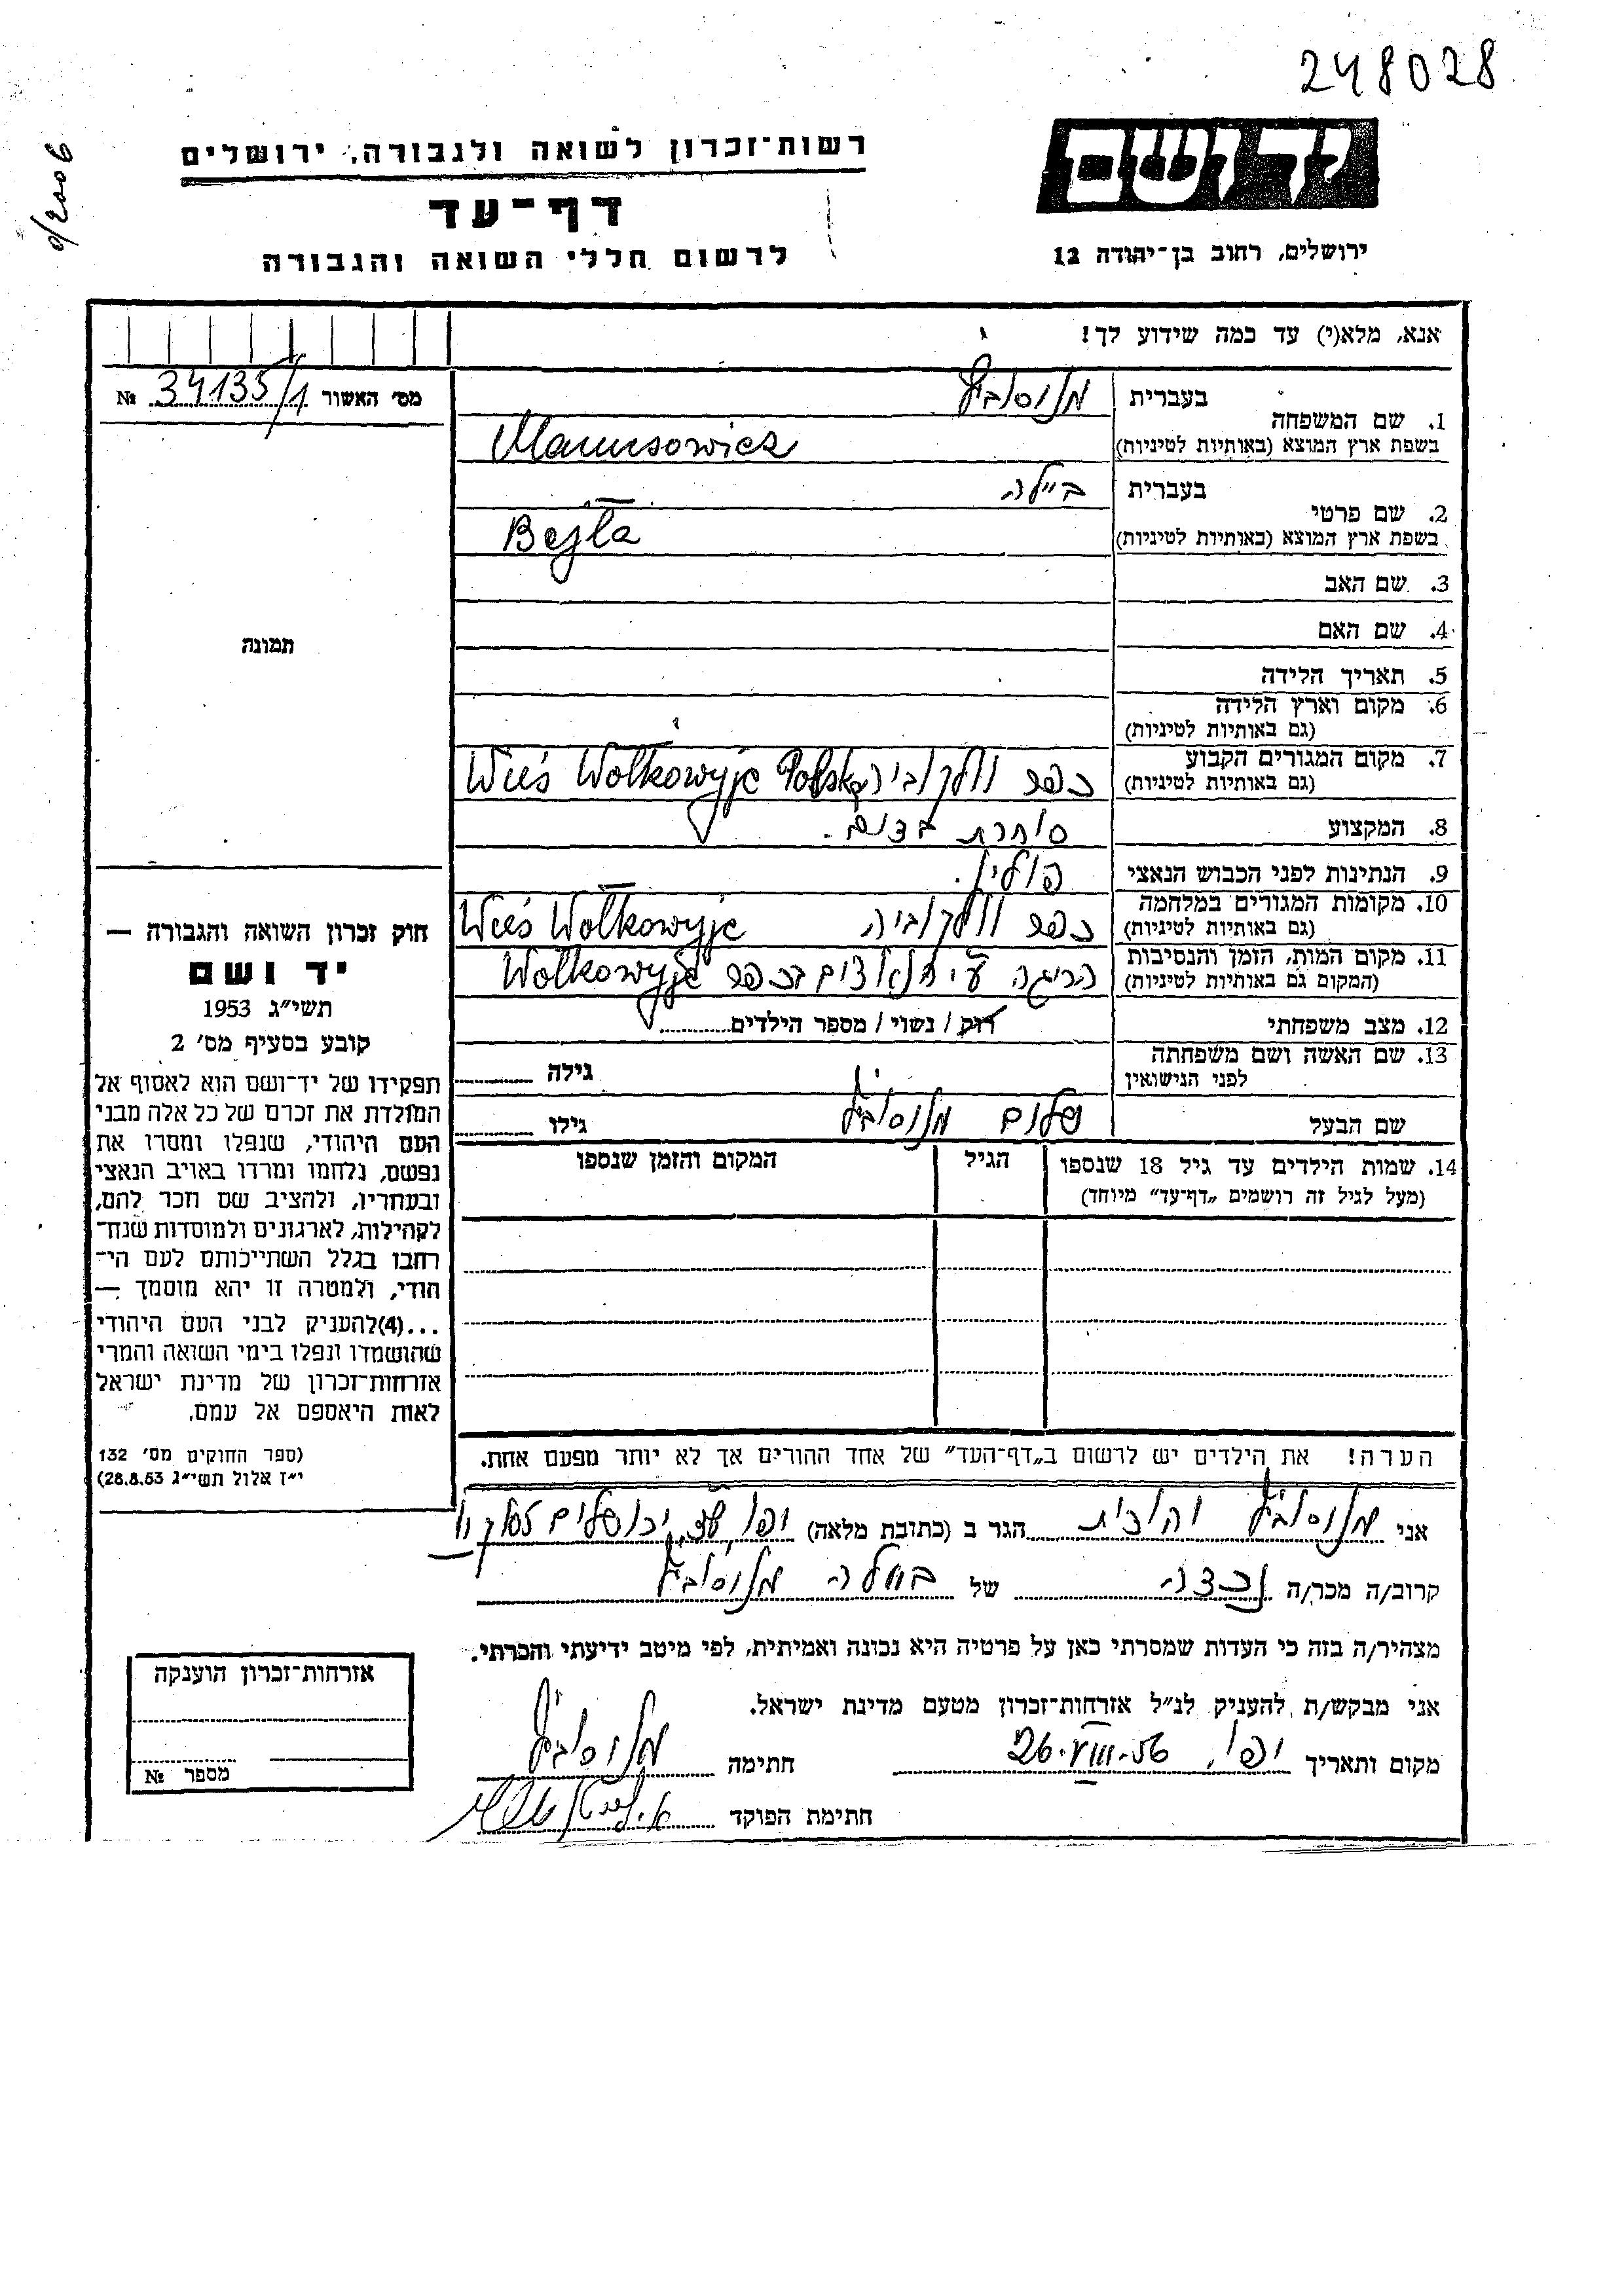 248028
6/2006
יד ושם
רשות־זכרון לשואה ולגבורה, ירושלים
דף־עד
לרשום חללי השואה והגבורה
ירושלים, רחוב בן־יהודה 12
אנא, מלא(י) עד כמה שידוע לך!
מס׳ האשור 34135/1 №
תמונה
1. שם המשפחה
בעברית מנוסוביץ
בשפת ארץ המוצא (באותיות לטיניות) Manusowicz
2. שם פרטי
בעברית ביילה
בשפת ארץ המוצא (באותיות לטיניות) Bejla
3. שם האב
4. שם האם
5. תאריך הלידה
6. מקום וארץ הלידה
(גם באותיות לטיניות)
7. מקום המגורים הקבוע
(גם באותיות לטיניות) כפר וולקוביה Wieś Wołkowyje Polska
8. המקצוע סוחרת בדים.
9. הנתינות לפני הכבוש הנאצי פולין.
10. מקומות המגורים במלחמה
(גם באותיות לטיניות) כפר וולקוביה Wieś Wołkowyje
11. מקום המות, הזמן והנסיבות
(המקום גם באותיות לטיניות) הריגה ע״י הנאצים בכפר Wołkowyje
12. מצב משפחתי רוק / נשוי / מספר הילדים
13. שם האשה ושם משפחתה
לפני הנישואין גילה
שם הבעל שלום מנוסוביץ גילו
14. שמות הילדים עד גיל 18 שנספו
(מעל לגיל זה רושמים „דף־עד״ מיוחד)
הגיל
המקום והזמן שנספו
הערה! את הילדים יש לרשום ב„דף־העד״ של אחד ההורים אך לא יותר מפעם אחת.
חוק זכרון השואה והגבורה —
יד ושם
תשי״ג 1953
קובע בסעיף מס׳ 2
תפקידו של יד־ושם הוא לאסוף אל
המולדת את זכרם של כל אלה מבני
העם היהודי, שנפלו ומסרו את
נפשם, נלחמו ומרדו באויב הנאצי
ובעוזריו, ולהציב שם וזכר להם,
לקהילות, לארגונים ולמוסדות שנח־
רחבו בגלל השתייכותם לעם הי־
הודי, ולמטרה זו יהא מוסמך —
...(4) להעניק לבני העם היהודי
שהושמדו ונפלו בימי השואה והמרי
אזרחות־זכרון של מדינת ישראל
לאות היאספם אל עמם.
(ספר החוקים מס׳ 132
י״ז אלול תשי״ג 28.8.53)
אני מנוסוביץ יהודית הגר ב (כתובת מלאה) יפו שד׳ ירושלים
קרוב/ה מכר/ה נכדה של ביילה מנוסוביץ
מצהיר/ה בזה כי העדות שמסרתי כאן על פרטיה היא נכונה ואמיתית, לפי מיטב ידיעתי והכרתי.
אני מבקש/ת להעניק לנ״ל אזרחות־זכרון מטעם מדינת ישראל.
מקום ותאריך יפו, 26.VIII.56 חתימה מנוסוביץ
חתימת הפוקד
אזרחות־זכרון הוענקה
מספר №